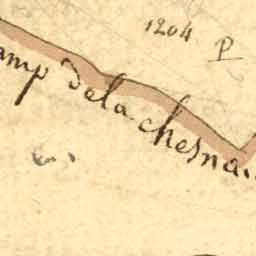 1204 P
amp de la chesna